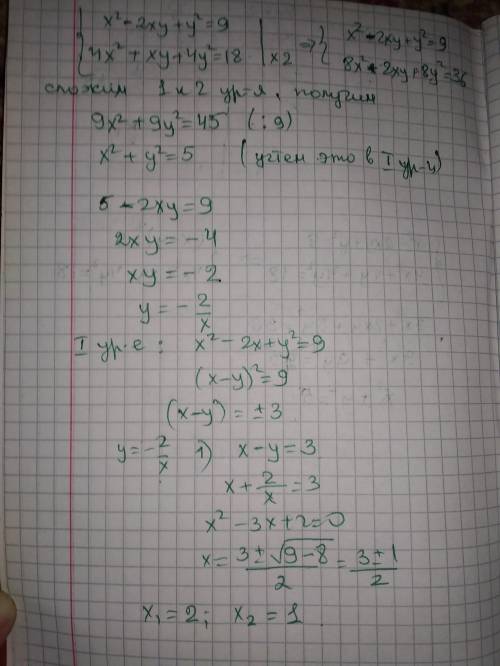 x² - 2xy + y² = 9
4x² + xy + 4y² = 18 | x2 => { x² - 2xy + y² = 9
8x² + 2xy + 8y² = 36
сложим 1 и 2 ур-я, получим
9x² + 9y² = 45 (:9)
x² + y² = 5 (учтем это в I ур-и)
5 - 2xy = 9
2xy = -4
xy = -2
y = - 2/x
I ур-е: x² - 2x + y² = 9
(x-y)² = 9
(x-y) = ±3
y = - 2/x 1) x - y = 3
x + 2/x = 3
x² - 3x + 2 = 0
x = (3 ± √(9-8))/2 = (3 ± 1)/2
x₁ = 2; x₂ = 1